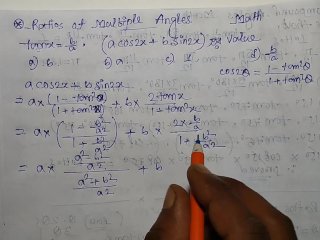 Ratios of Multiple Angles Math
tanx = b/a. (a cos2x + b sin2x) Value
a) b. b) a c) d) b/a
a cos2x + b sin2x cos2θ = (1 - tan²θ)/(1 + tan²θ)
= a x ((1 - tan²θ)/(1 + tan²θ)) + b x (2 tanx)/(1 + tan²x)
= a x ((1 - b²/a²)/(1 + b²/a²)) + b x (2 x b/a)/(1 + b²/a²)
= a x (a² - b²)/a² / (a² + b²)/a² + b